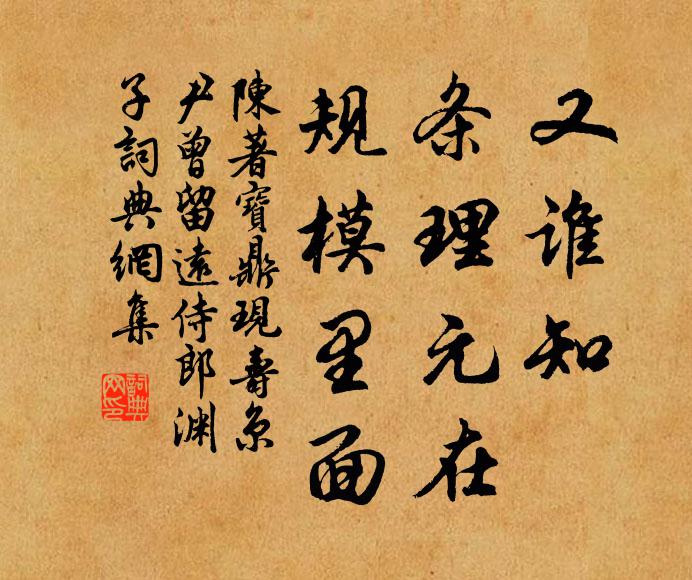 又谁知
条理元在
规模里面
陳著寶鼎現壽京
尹曾留遠侍郎渊
子詞典網集
詞典
网印